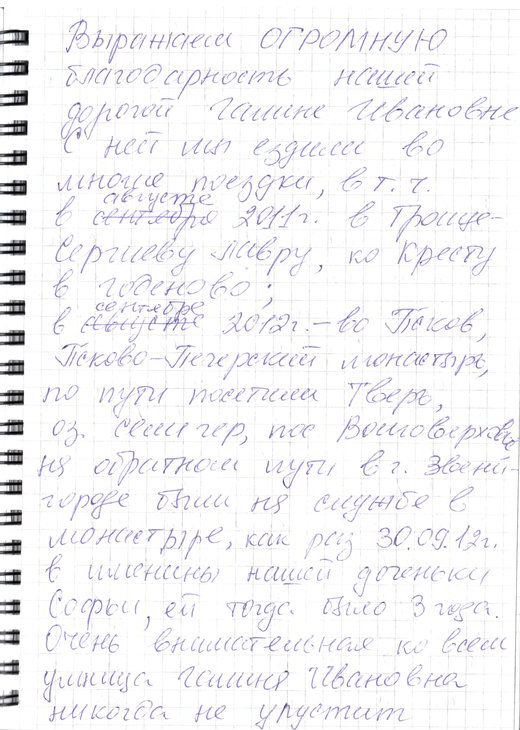 Выражаем ОГРОМНУЮ
благодарность нашей
дорогой Галине Ивановне
С ней мы ездили во
многие поездки, в т. ч.
августе
в сентябре 2011г. в Троице-
Сергиеву Лавру, ко Кресту
в Годеново;
сентябре
в августе 2012г. – во Псков,
Псково-Печерский монастырь,
по пути посетили Тверь,
оз. Селигер, пос Волговерховье
на обратном пути в г. Звени-
городе были на службе в
монастыре, как раз 30.09.12г.
в именины нашей доченьки
Софьи, ей тогда было 3 года.
Очень внимательная ко всем
умница Галина Ивановна
никогда не упустит